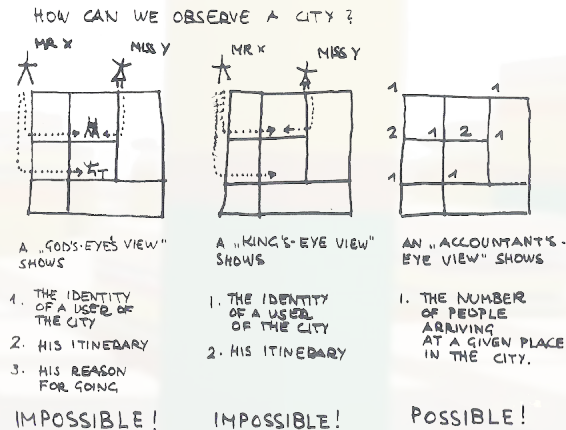 HOW CAN WE OBSERVE A CITY?
MR X
MISS Y
A „GOD'S-EYE'S VIEW"
SHOWS
1. THE IDENTITY
OF A USER OF
THE CITY
2. HIS ITINERARY
3. HIS REASON
FOR GOING
IMPOSSIBLE!
MR X
MISS Y
A „KING'S-EYE VIEW"
SHOWS
1. THE IDENTITY
OF A USER
OF THE CITY
2. HIS ITINERARY
IMPOSSIBLE!
1 1
2 1 2 1
1 1
AN „ACCOUNTANT'S-
EYE VIEW" SHOWS
1. THE NUMBER
OF PEOPLE
ARRIVING
AT A GIVEN PLACE
IN THE CITY.
POSSIBLE!